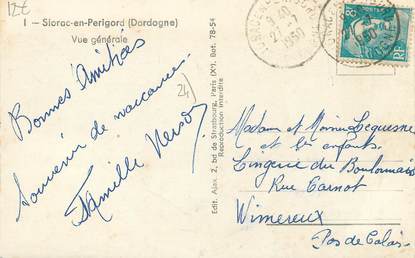 12€
1 - Siorac-en-Périgord (Dordogne)
Vue générale
Bonnes Amitiés
Souvenir de vacances.
Famille
24
Edit. Ajax. 2, bd de Strasbourg, Paris (Xe). Bot. 78-54
Reproduction interdite
9 30
27-7
1950
RF
Madame et Monsieur Lequesne
et les enfants.
Lingerie du Boulonnais
Rue Carnot
Wimereux
Pas de Calais